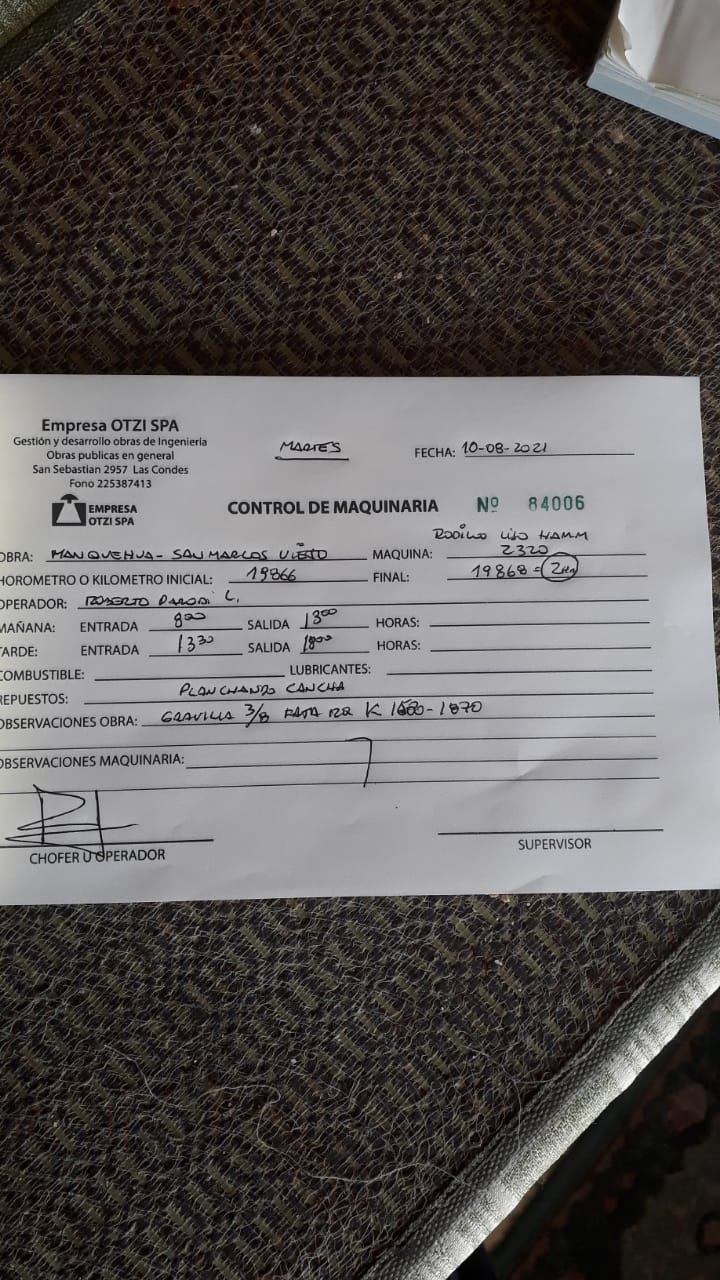 Empresa OTZI SPA
Gestión y desarrollo obras de Ingenieria
Obras publicas en general
San Sebastian 2957 Las Condes
Fono 225387413
MARTES
FECHA: 10-08-2021
EMPRESA
OTZI SPA
CONTROL DE MAQUINARIA Nº 84006
RODILLO LISO HAMM
OBRA: MANQUEHUA - SAN MARCOS VIEJO MAQUINA: 2320
HOROMETRO O KILOMETRO INICIAL: 19866 FINAL: 19868 = 2
OPERADOR: ROBERTO PARODI L.
MAÑANA: ENTRADA 800 SALIDA 1300 HORAS:
TARDE: ENTRADA 1330 SALIDA 1800 HORAS:
COMBUSTIBLE: LUBRICANTES:
REPUESTOS: PLANCHANDO CANCHA
OBSERVACIONES OBRA: GRAVILLA 3/8 K - 1870
OBSERVACIONES MAQUINARIA:
CHOFER U OPERADOR
SUPERVISOR